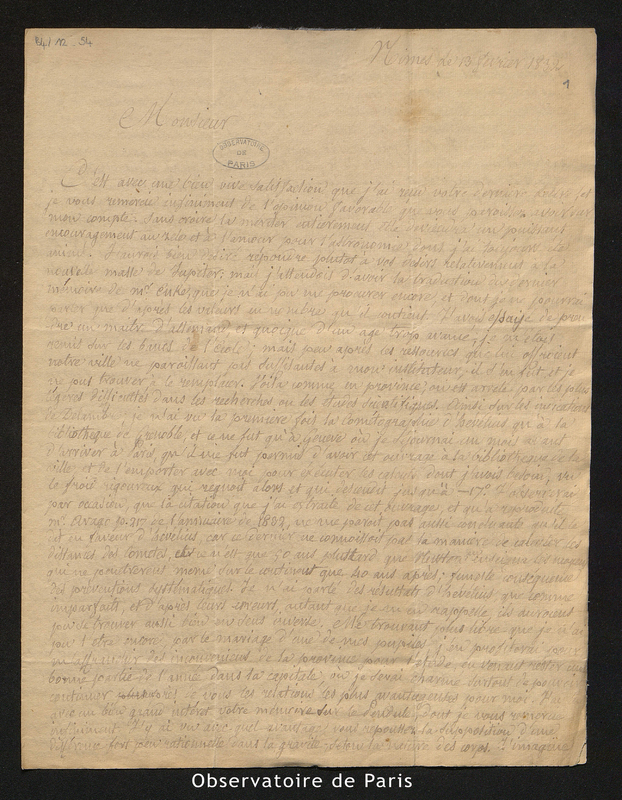 Nimes le 13 fevrier 183
1
Monsieur
OBSERVATOIRE
DE
PARIS
C'est avec une bien vive satisfaction que j'ai reçu votre dernière lettre, et
je vous remercie infiniment de l'opinion favorable que vous paroissez avoir sur
mon compte. Sans croire la mériter entierement elle deviendra un puissant
encouragement au zele et à l'amour pour l'astronomie dont j'ai toujours été
animé. J'aurois bien désiré répondre plutot à vos désirs relativement à la
nouvelle masse de Jupiter; mais j'attendois d'avoir la traduction du dernier
mémoire de mr. encke, que je n'ai pu me procurer encore, et dont je ne pourrai
parler que d'après les valeurs en nombres qu'il contient. J'avois essaye de pren
dre un maître d'allemand et quoique d'un age trop avancé, je m'étois
remis sur les bancs de l'école; mais peu après les ressources que lui offroient
notre ville ne paroissant pas suffisantes à mon instituteur, il s'en fut et je
ne pus trouver à le remplacer. Voila comme en province on est arrêté par les plus
légères difficultés dans les recherches ou les études scientifiques. Ainsi sur les
je n'ai vu la première fois la cométographie d'hevelius qu'à la
bibliothèque de grenoble, et ce ne fut qu'à geneve où je séjournai un mois avant
d'arriver à Paris qu'il me fut permis d'avoir cet ouvrage à la bibliothèque de la
ville, et de l'emporter avec moi pour executer les calculs dont j'avois besoin, vu
le froid rigoureux qui regnoit alors et qui descendit jusqu'à -17°. J'observerai
par occasion, que la citation que j'ai extraite de cet ouvrage, et qu'a reproduite
mr. Arago p. 217 de l'annuaire de 1832, ne me paroit pas aussi concluante qu'il le
dit en faveur d'hevelius, car ce dernier ne connoissoit pas la manière de calculer les
distances des cometes, et ce n'est que 50 ans plus tard que Newton enseigna les moyens
qui ne pénétrèrent même sur le continent que 40 ans après; funeste conséquence
des préventions systématiques. Je n'ai parlé des résultats d'hevelius que comme
imparfaits, et d'après leurs erreurs, autant que je m'en rappelle, ils auroient
pu se trouver aussi bien en sens inverse. Me trouvant plus libre que je n'ai
pu l'être encore, par le mariage d'une de mes pupilles, j'en profiterai pour
m'affranchir des inconveniens de la province pour l'étude, en venant rester une
bonne partie de l'année dans la capitale; je serai charmé surtout de pouvoir
continuer auprès de vous les relations les plus avantageuses pour moi. J'ai
lu avec un bien grand intérêt votre mémoire sur le Pendule, dont je vous remercie
infiniment. J'y ai vu avec quel avantage vous repoussez la supposition d'une
différence fort peu rationnelle dans la gravité selon la nature des corps. J'imagine
Observatoire de Paris